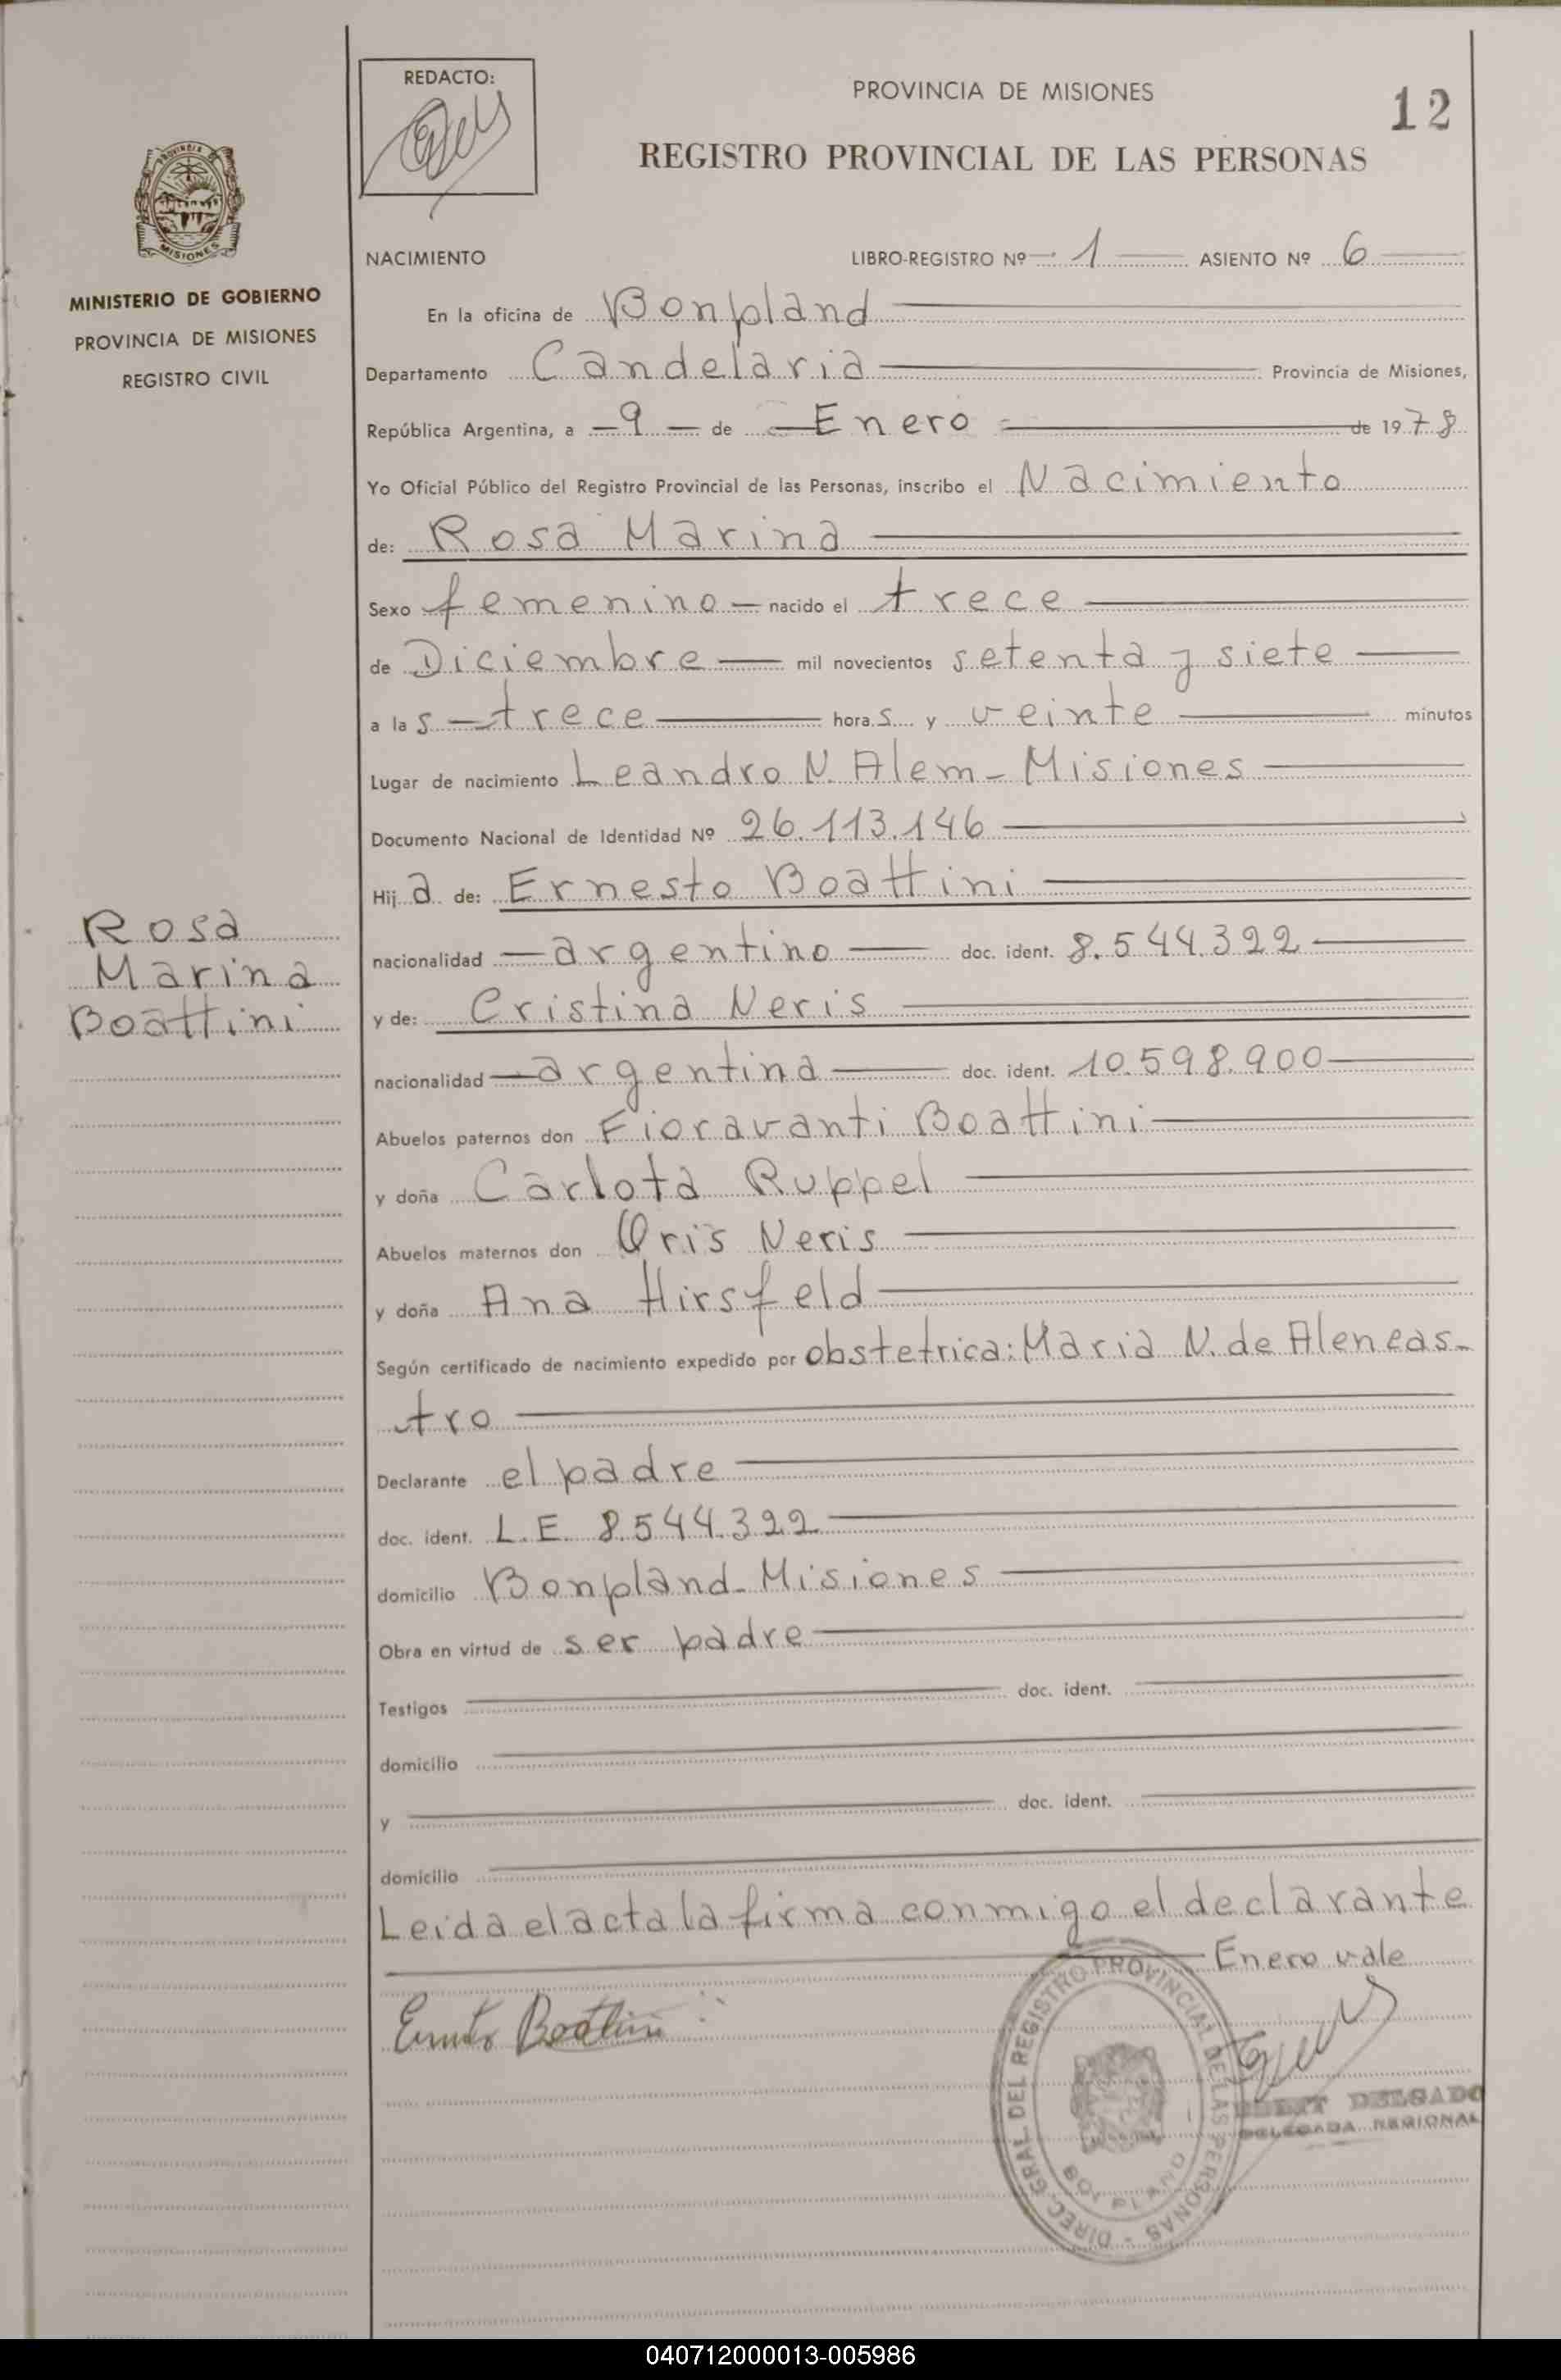 REDACTO:
PROVINCIA DE MISIONES
12
REGISTRO PROVINCIAL DE LAS PERSONAS
PROVINCIA
MISIONES
MINISTERIO DE GOBIERNO
PROVINCIA DE MISIONES
REGISTRO CIVIL
NACIMIENTO LIBRO-REGISTRO Nº 1 ASIENTO Nº 6
En la oficina de Bonpland
Departamento Candelaria Provincia de Misiones,
República Argentina, a 9 de Enero de 1978
Yo Oficial Público del Registro Provincial de las Personas, inscribo el Nacimiento
de: Rosa Marina
Sexo femenino nacido el trece
de Diciembre mil novecientos setenta y siete
a las trece horas y veinte minutos
Lugar de nacimiento Leandro N. Alem - Misiones
Documento Nacional de Identidad Nº 26.113.146
Hija de: Ernesto Boattini
nacionalidad argentino doc. ident. 8.544.322
y de: Cristina Neris
nacionalidad argentina doc. ident. 10.598.900
Abuelos paternos don Fioravanti Boattini
y doña Carlota Ruppel
Abuelos maternos don Oris Neris
y doña Ana Hirsfeld
Según certificado de nacimiento expedido por obstetrica: Maria N. de Aleneas-
tro
Declarante el padre
doc. ident. L.E. 8.544.322
domicilio Bonpland - Misiones
Obra en virtud de ser padre
Testigos doc. ident.
domicilio
y doc. ident.
domicilio
Leida el acta la firma conmigo el declarante
Enero vale
Rosa
Marina
Boattini
Ernesto Boattini
DIREC. GRAL. DEL REGISTRO PROVINCIAL DE LAS PERSONAS
BONPLAND
DELGADO
DELEGADA REGIONAL
040712000013-005986